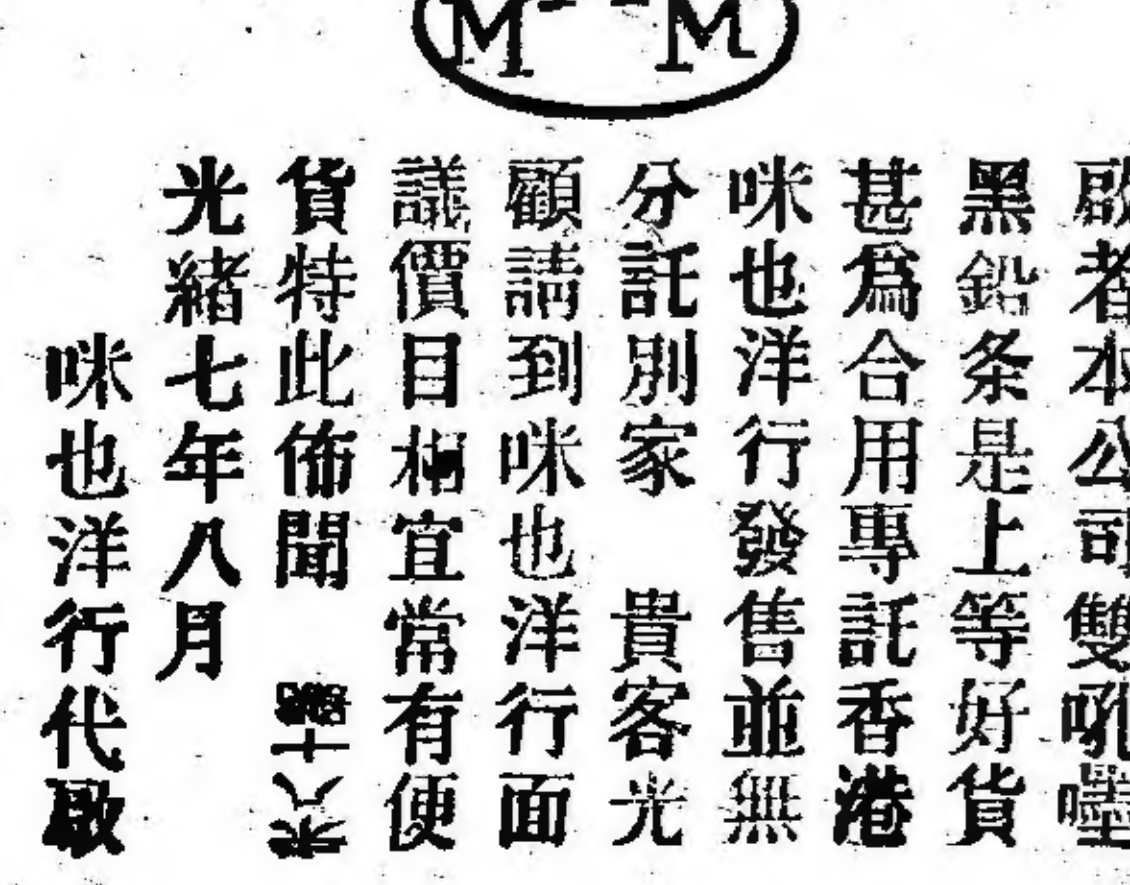 M M
啟者本公司雙吼嚜
黑鉛条是上等好貨
甚爲合用專託香港
咪也洋行發售並無
分託別家 貴客光
顧請到咪也洋行面
議價目相宜常有便
貨特此佈聞
光緒七年八月
咪也洋行代啟